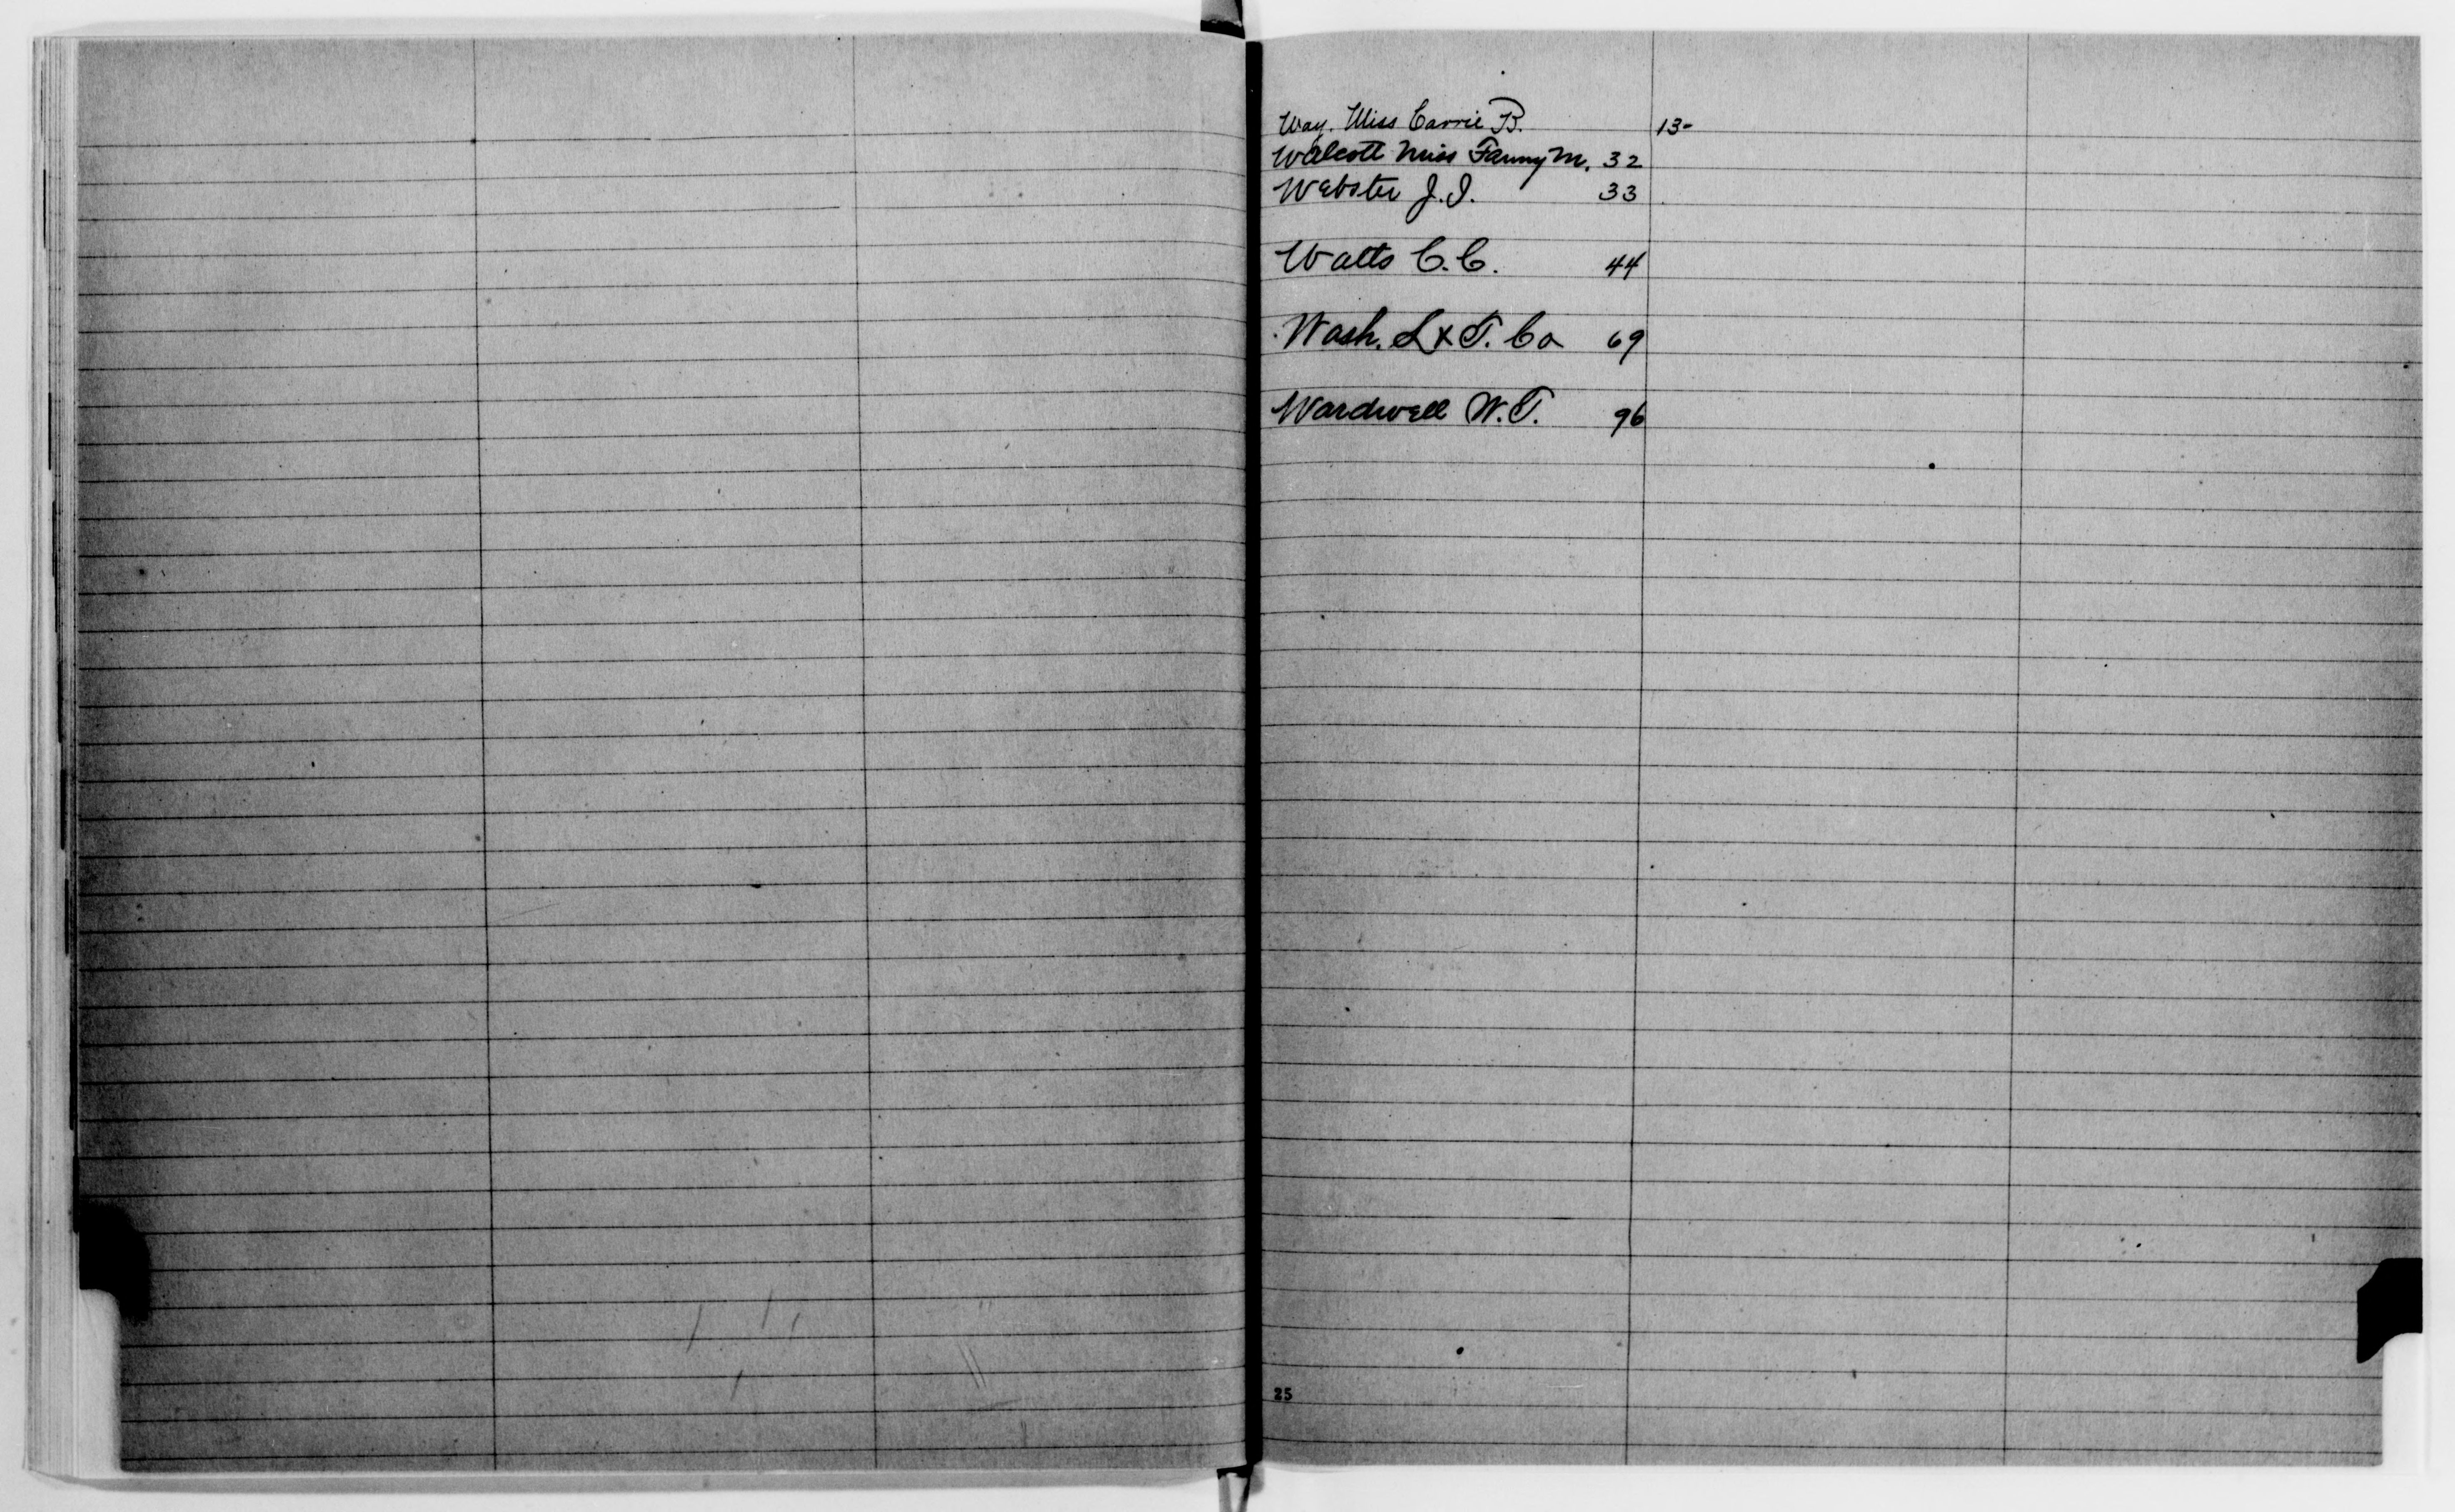 Way. Miss Carrie B. 13-
Walcott Miss Fanny M. 32
Webster J. I. 33
Watts C. C. 44
Wash. L & T. Co 69
Wardwell W. T. 96
25